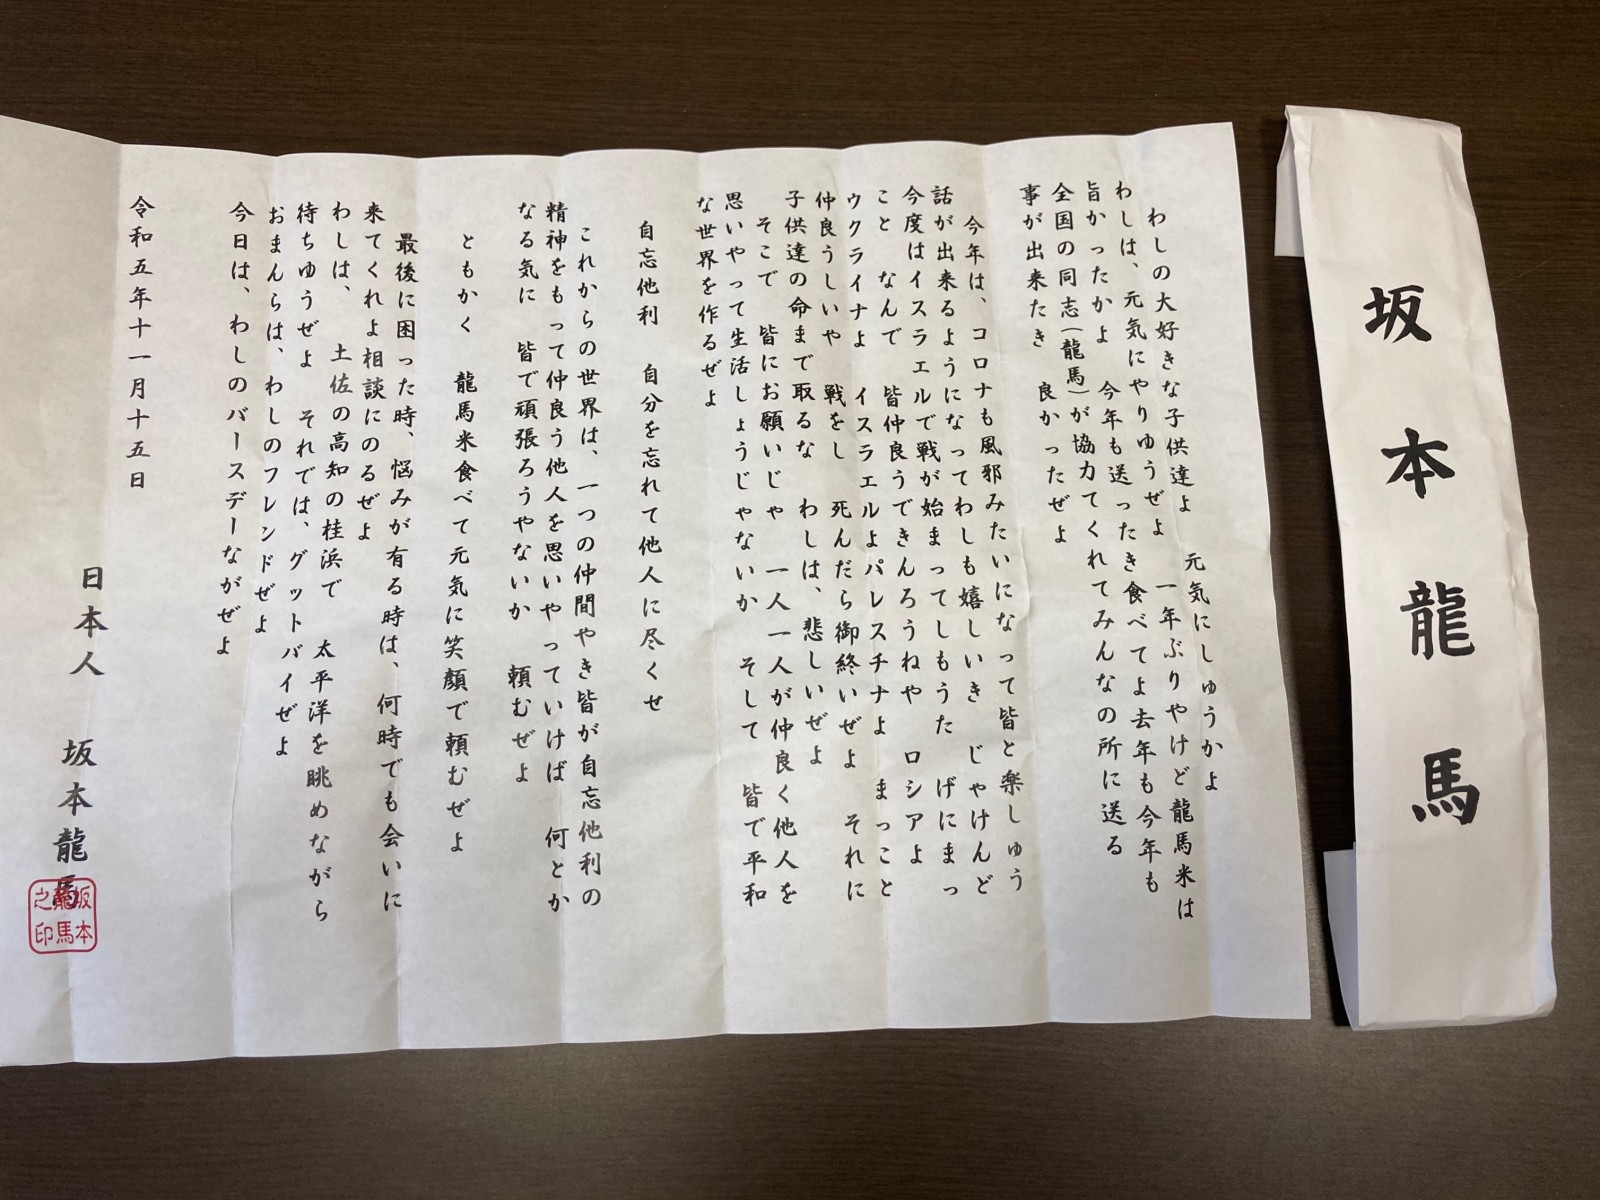 坂本龍馬
わしの大好きな子供達よ　元気にしゅうかよ
わしは、元気にやりゆうぜよ　一年ぶりやけど龍馬米は
旨かったかよ　今年も送ったき食べてよ去年も今年も
全国の同志(龍馬)が協力てくれてみんなの所に送る
事が出来たき　良かったぜよ
今年は、コロナも風邪みたいになって皆と楽しゅう
話が出来るようになってわしも嬉しいき　じゃけんど
今度はイスラエルで戦が始まってしもうた　げにまっ
こと　なんで　皆仲良うできんろうねや　ロシアよ
ウクライナよ　イスラエルよパレスチナよ　まっこと
仲良うしいや　戦をし　死んだら御終いぜよ　それに
子供達の命まで取るな　わしは、悲しいぜよ
そこで　皆にお願いじゃ　一人一人が仲良く他人を
思いやって生活しょうじゃないか　そして　皆で平和
な世界を作るぜよ
自忘他利　自分を忘れて他人に尽くせ
これからの世界は、一つの仲間やき皆が自忘他利の
精神をもって仲良う他人を思いやっていけば　何とか
なる気に　皆で頑張ろうやないか　頼むぜよ
ともかく　龍馬米食べて元気に笑顔で頼むぜよ
最後に困った時、悩みが有る時は、何時でも会いに
来てくれよ相談にのるぜよ
わしは、　土佐の高知の桂浜で　太平洋を眺めながら
待ちゆうぜよ　それでは、グットバイぜよ
おまんらは、わしのフレンドぜよ
今日は、わしのバースデーながぜよ
令和五年十一月十五日
日本人　坂本龍馬
坂本
龍馬
之印